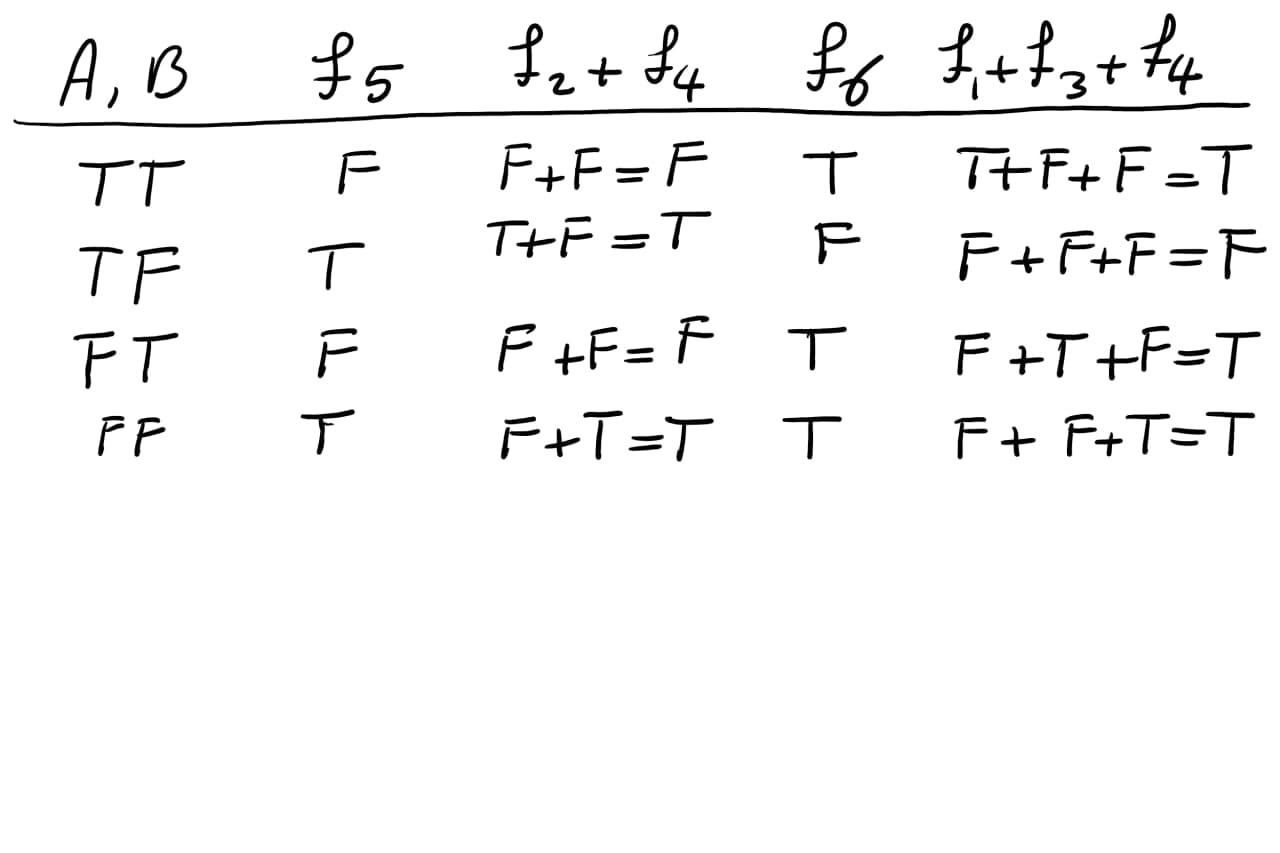 A, B f₅ f₂ + f₄ f₆ f₁ + f₃ + f₄
TT F F+F=F T T+F+F=T
TF T T+F=T F F+F+F=F
FT F F+F=F T F+T+F=T
FF T F+T=T T F+F+T=T